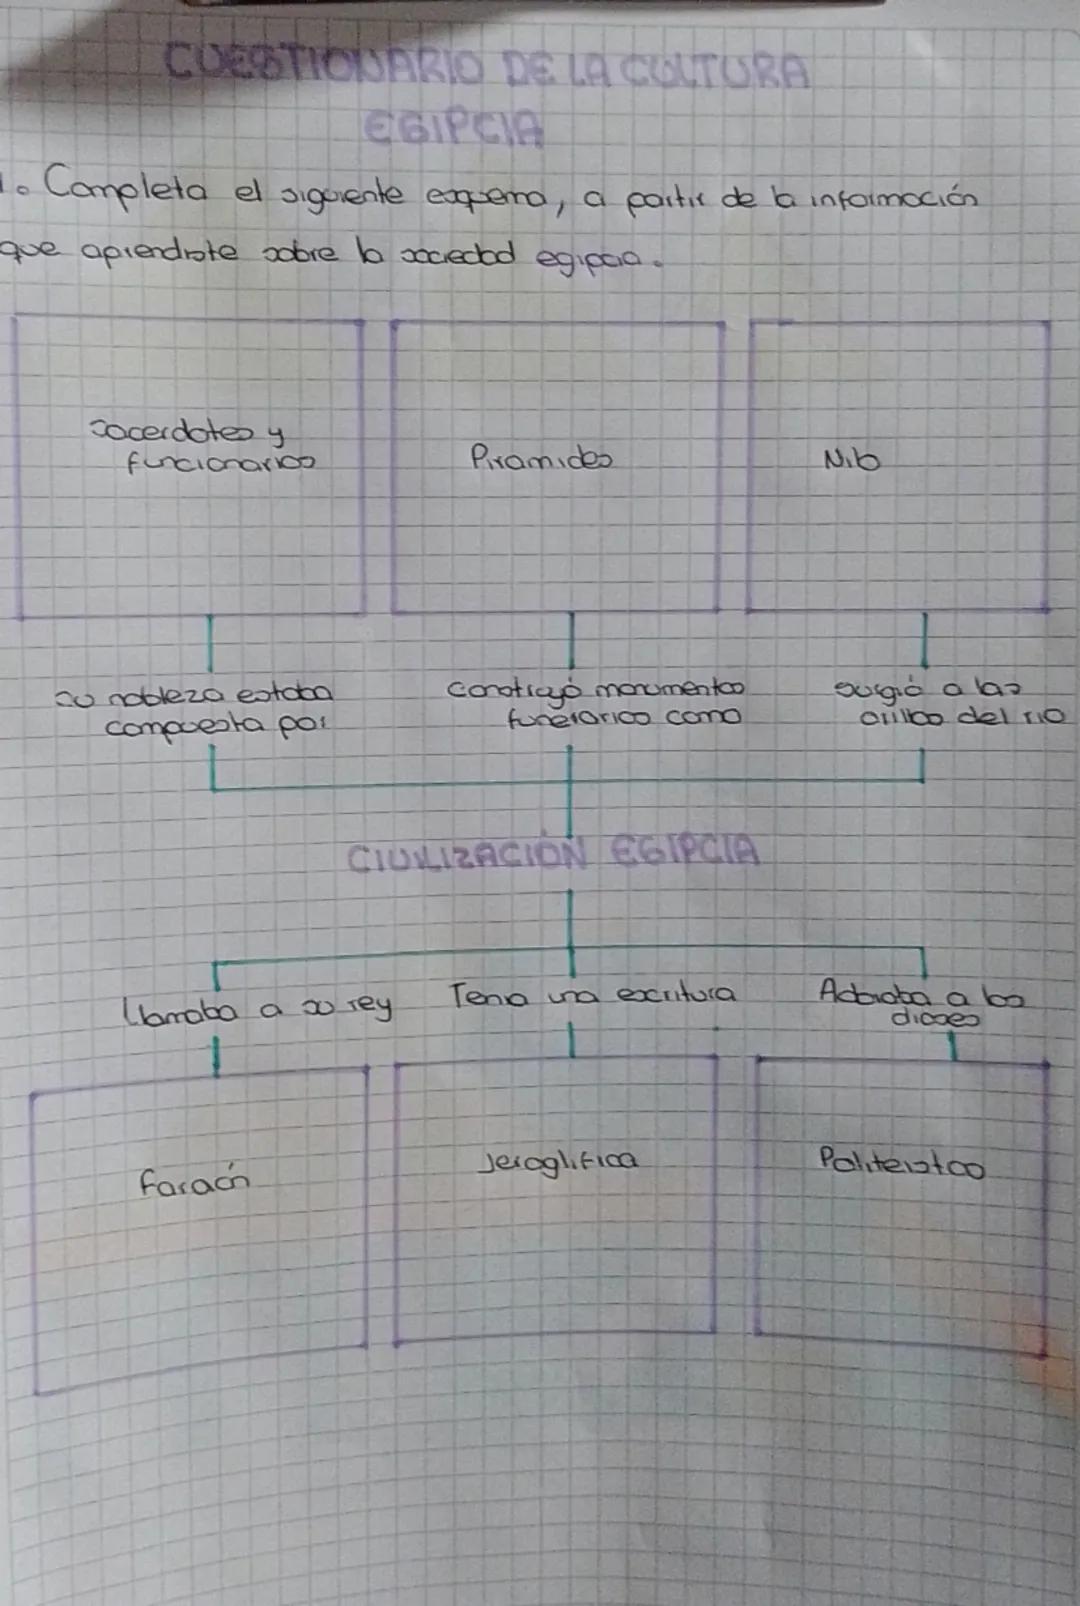 CUESTIONARIO DE LA CULTURA
EGIPCIA
1. Completa el siguiente esquema, a partir de la información
que aprendiste sobre la sociedad egipcia.
Sacerdotes y
funcionarios
Piramides
Nilo
su nobleza estaba
compuesta por
Construyó monumentos
funerarios como
surgió a las
orillas del rio
CIVILIZACIÓN EGIPCIA
Llamaba a su rey
Tenia una escritura
Adoraba a los
dioses
faraón
Jeroglifica
Politeistas